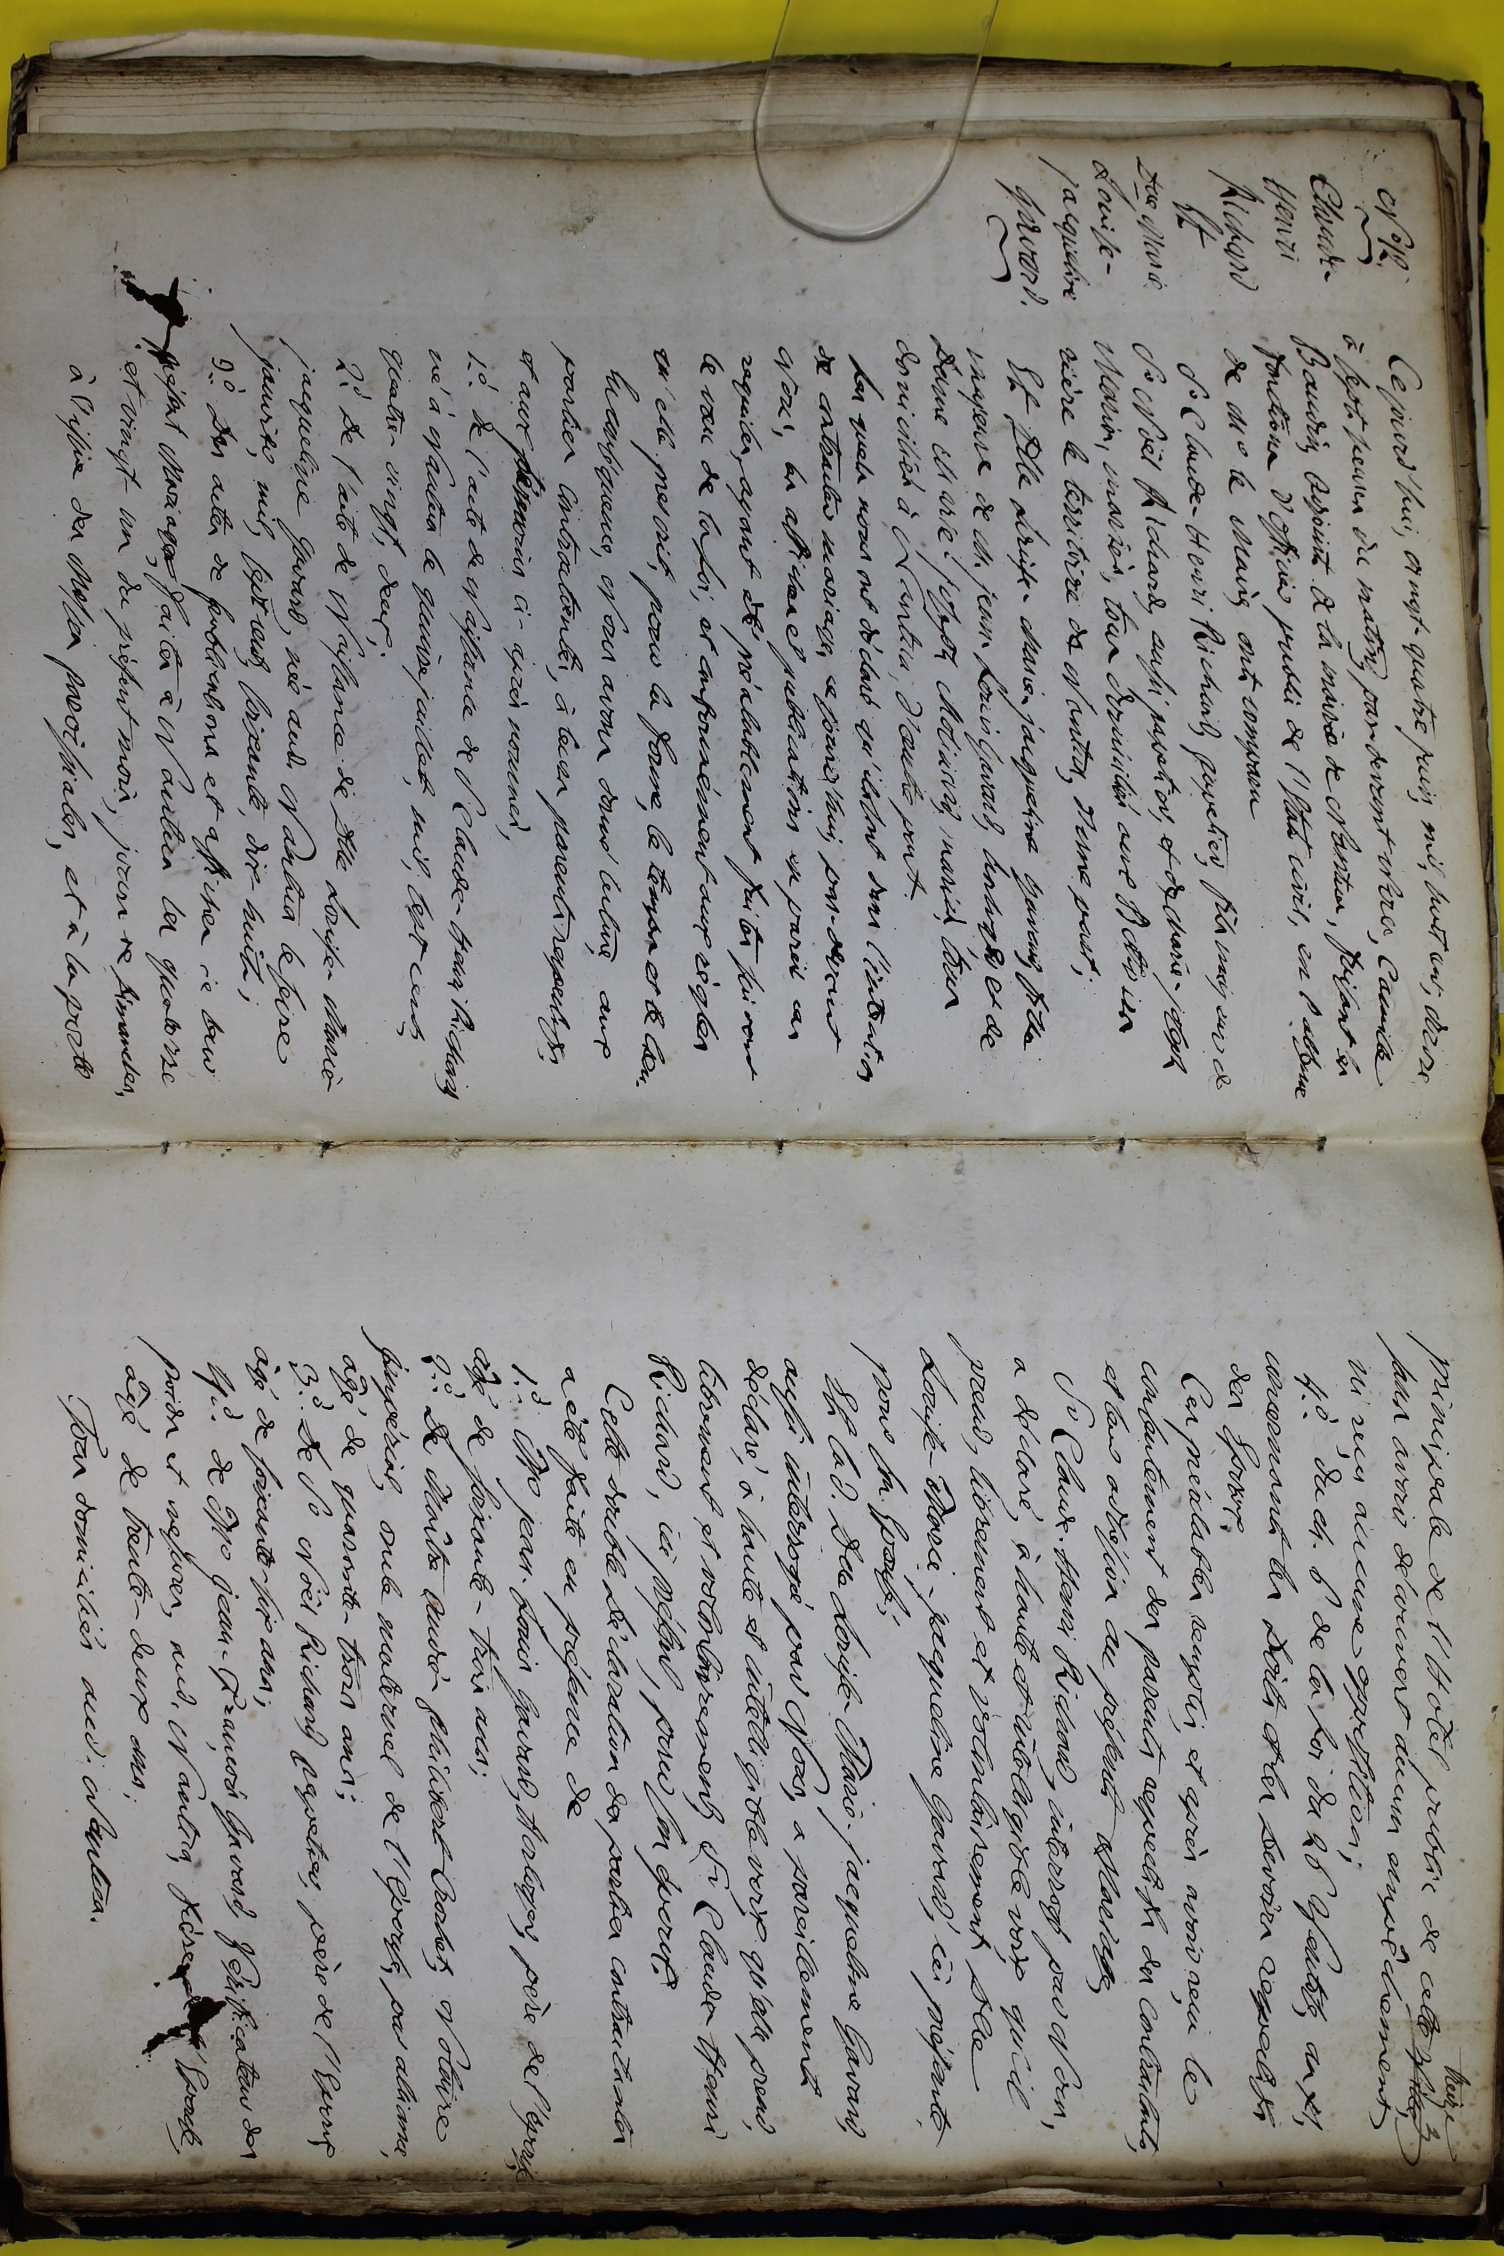 N.° 12.
Claude-
Henri
Richard
Et
Dlle Marie
Louise-
jacqueline
Gavard.
Cejourd'hui, vingt-quatre juin, mil huit cent, douze
à sept heures du matin, pardevant Nous, Camille
Baudin, adjoint à la mairie de Nantua, faisant les
fonctions d'officier public de l'état civil, en l'absence
de Mr le Maire, ont comparu
Sr Claude-Henri Richard, papetier, fils majeur de
Sr Noël Richard, aussi papetier, et de Marie-joseph
Mariés, tous domiciliés
rière le territoire de Nantua, d'une part;
Et Dlle Louise-Marie-jacqueline Gavard, fille
majeure de M. jean-Louis Gavard, horloger et de
Dame Marie-joseph mariés, tous
domiciliés à Nantua, d'autre part.
Les quels nous ont déclaré qu'ils sont dans l'intention
de contracter mariage, cejourd'hui, par-devant
Nous, les affiches et publications en pareil cas
requises, ayant été préalablement faites suivant
le vœu de la loi, et conformément aux règles
qu'elle prescrit, pour la forme, le temps et le lieu.
En conséquence, Nous avons donné lecture, aux
parties contractantes, à leurs parents respectifs,
et aux témoins ci-après nommés,
1.° de l'acte de Naissance de Claude-henri Richard,
né à Nantua le quinze juillet, mil, sept cent,
quatre-vingt, deux;
2.° De l'acte de Naissance de Dlle Louise-Marie-
jacqueline Gavard, née aud. Nantua le seize
janvier, mil, sept cent, soixante, dix-huit;
3.° Des actes de publications et affiches de leur
présent Mariage, faites à Nantua les quatorze
et vingt-un du présent mois, jours de dimanches,
à l'issue des Messes paroissiales, et à la porte
treize
principale de l'Hôtel public de cette Ville,
sans avoir découvert aucun empêchement,
ni reçu aucune opposition;
4.° du ch. 6 de la loi du Titre
concernant les droits et les devoirs respectifs
des Epoux.
Ces préalables remplis, et après avoir reçu le
consentement des parents respectifs des contractants,
et leur adhésion au présent Mariage,
Sr Claude-Henri Richard, interrogé par Nous,
a déclaré, à haute et intelligible voix, qu'il
prend, librement et volontairement Dlle
Louise-Marie-jacqueline Gavard, ici présente,
pour son Epouse;
Et lad. Dlle Louise-Marie-jacqueline Gavard,
aussi interrogée par Nous, a pareillement
déclaré, à haute et intelligible voix, qu'elle prend,
librement et volontairement, Sr Claude-Henri
Richard, ici présent, pour son Epoux.
Cette double déclaration des parties contractantes
a été faite en présence de
1.° Mr jean-Louis Gavard, horloger, père de l'Epouse,
âgé de soixante-trois ans;
2.° De Maître philibert Notaire
impérial, oncle maternel de l'Epouse, par alliance,
âgé de quarante-trois ans;
3.° de Sr Noël Richard, papetier, père de l'Epoux
âgé de soixante-six ans;
4.° de Mr jean-François Gavard, Vérificateur des
poids et mesures, aud. Nantua, frère de l'Epouse,
âgé de trente-deux ans;
Tous domiciliés aud. Nantua.